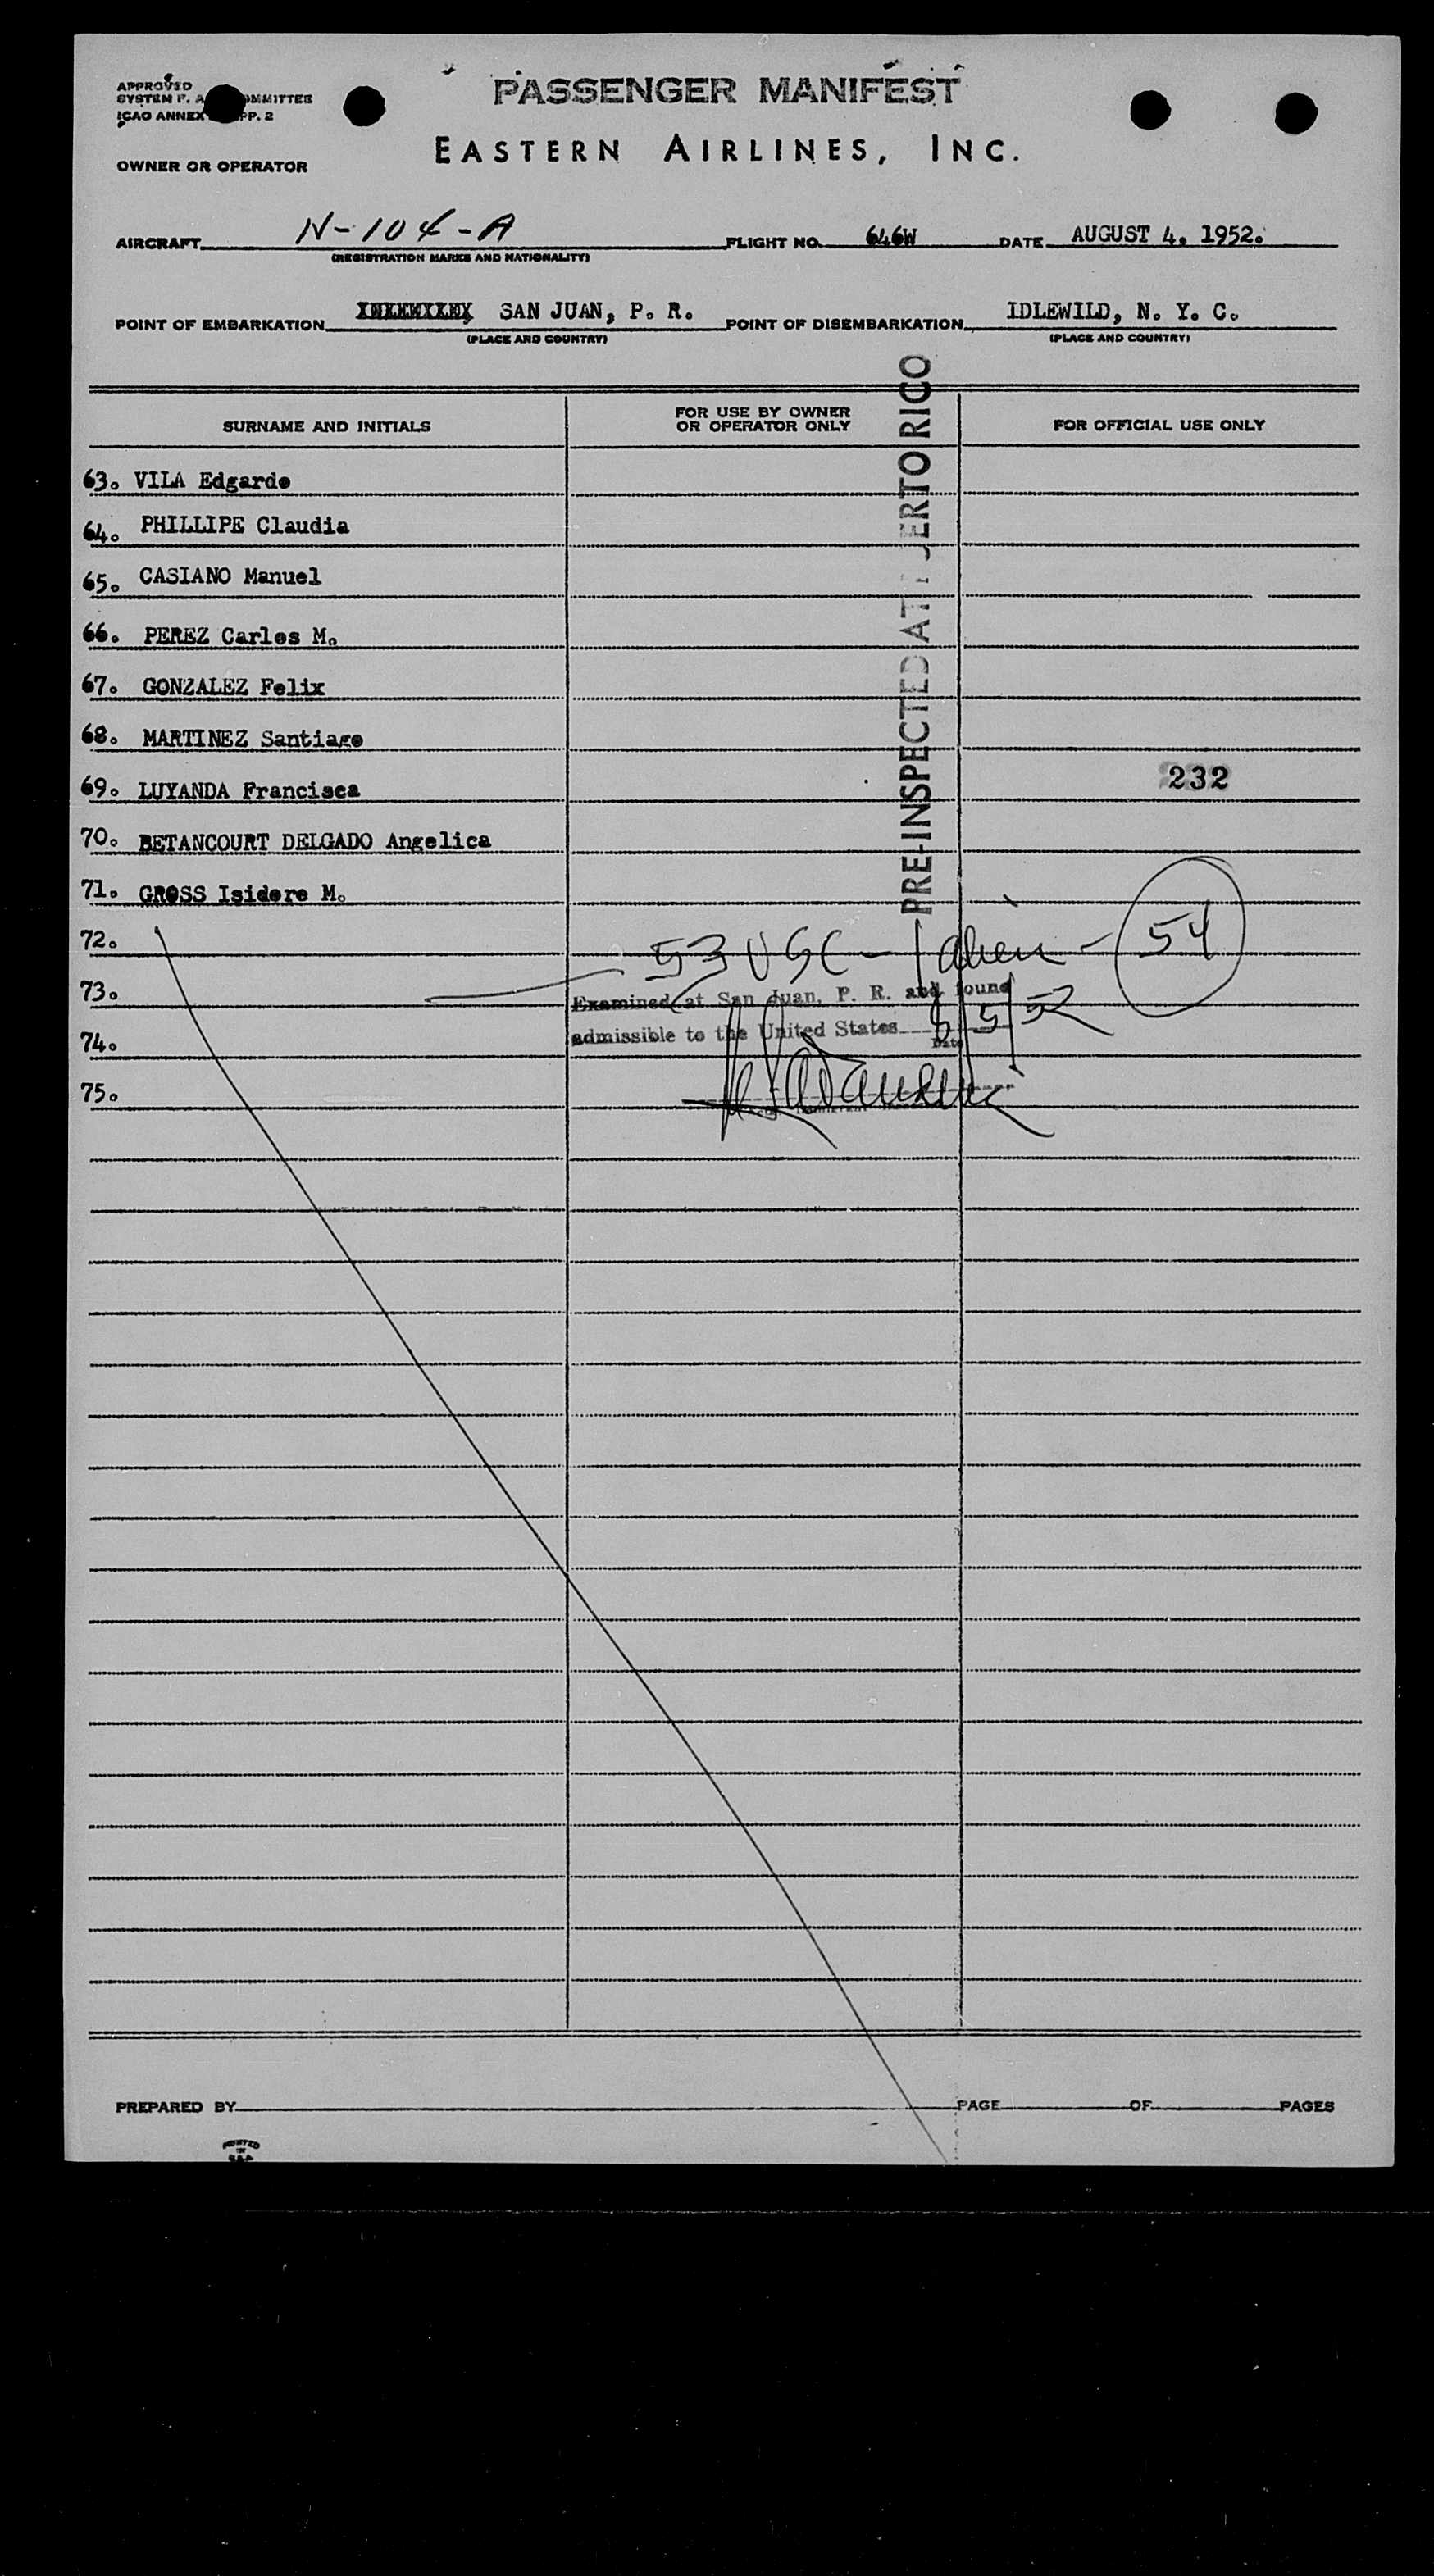 APPROVED
SYSTEM F. A. COMMITTEE
ICAO ANNEX PP. 2
PASSENGER MANIFEST
EASTERN AIRLINES, INC.
OWNER OR OPERATOR
AIRCRAFT N-104-A FLIGHT NO. 646W DATE AUGUST 4, 1952.
(REGISTRATION MARKS AND NATIONALITY)
POINT OF EMBARKATION SAN JUAN, P. R. POINT OF DISEMBARKATION IDLEWILD, N. Y. C.
(PLACE AND COUNTRY) (PLACE AND COUNTRY)
SURNAME AND INITIALS FOR USE BY OWNER OR OPERATOR ONLY FOR OFFICIAL USE ONLY
PRE-INSPECTED AT PUERTO RICO
63. VILA Edgardo
64. PHILLIPE Claudia
65. CASIANO Manuel
66. PEREZ Carlos M.
67. GONZALEZ Felix
68. MARTINEZ Santiago
69. LUYANDA Francisca 232
70. BETANCOURT DELGADO Angelica
71. GROSS Isidore M.
72. 53 USC - 1 alien - 54
73. Examined at San Juan, P. R. and found
74. admissible to the United States 8/5/52
Date
75.
PREPARED BY PAGE OF PAGES
PRINTED
IN
U.S.A.